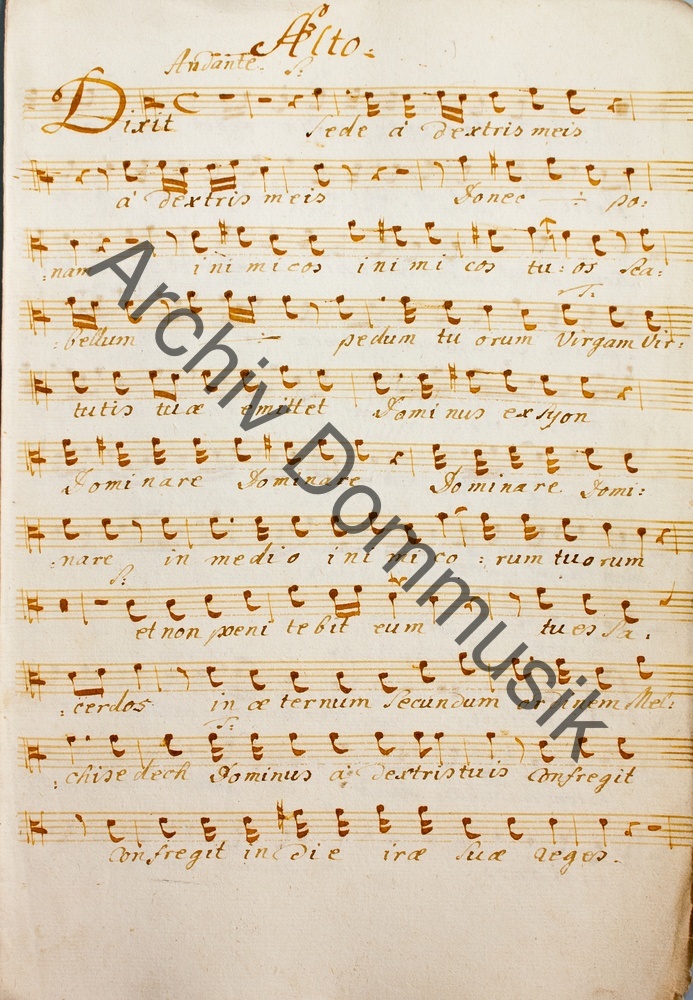 Alto.
Andante. S:
Dixit Sede à dextris meis
à dextris meis Donec ÷ po:
:nam inimicos inimicos tu:os Sca:
T:
:bellum ÷ pedum tuorum Virgam Vir:
tutis tuæ emittet Dominus ex syon
Dominare Dominare Dominare Domi:
:nare in medio inimico:rum tuorum
S:
et non pœnitebit eum tu es Sa:
:cerdos in æternum Secundum ordinem Mel:
T:
chisedech Dominus à dextris tuis Confregit
Confregit in die iræ suæ reges.
Archiv Dommusik